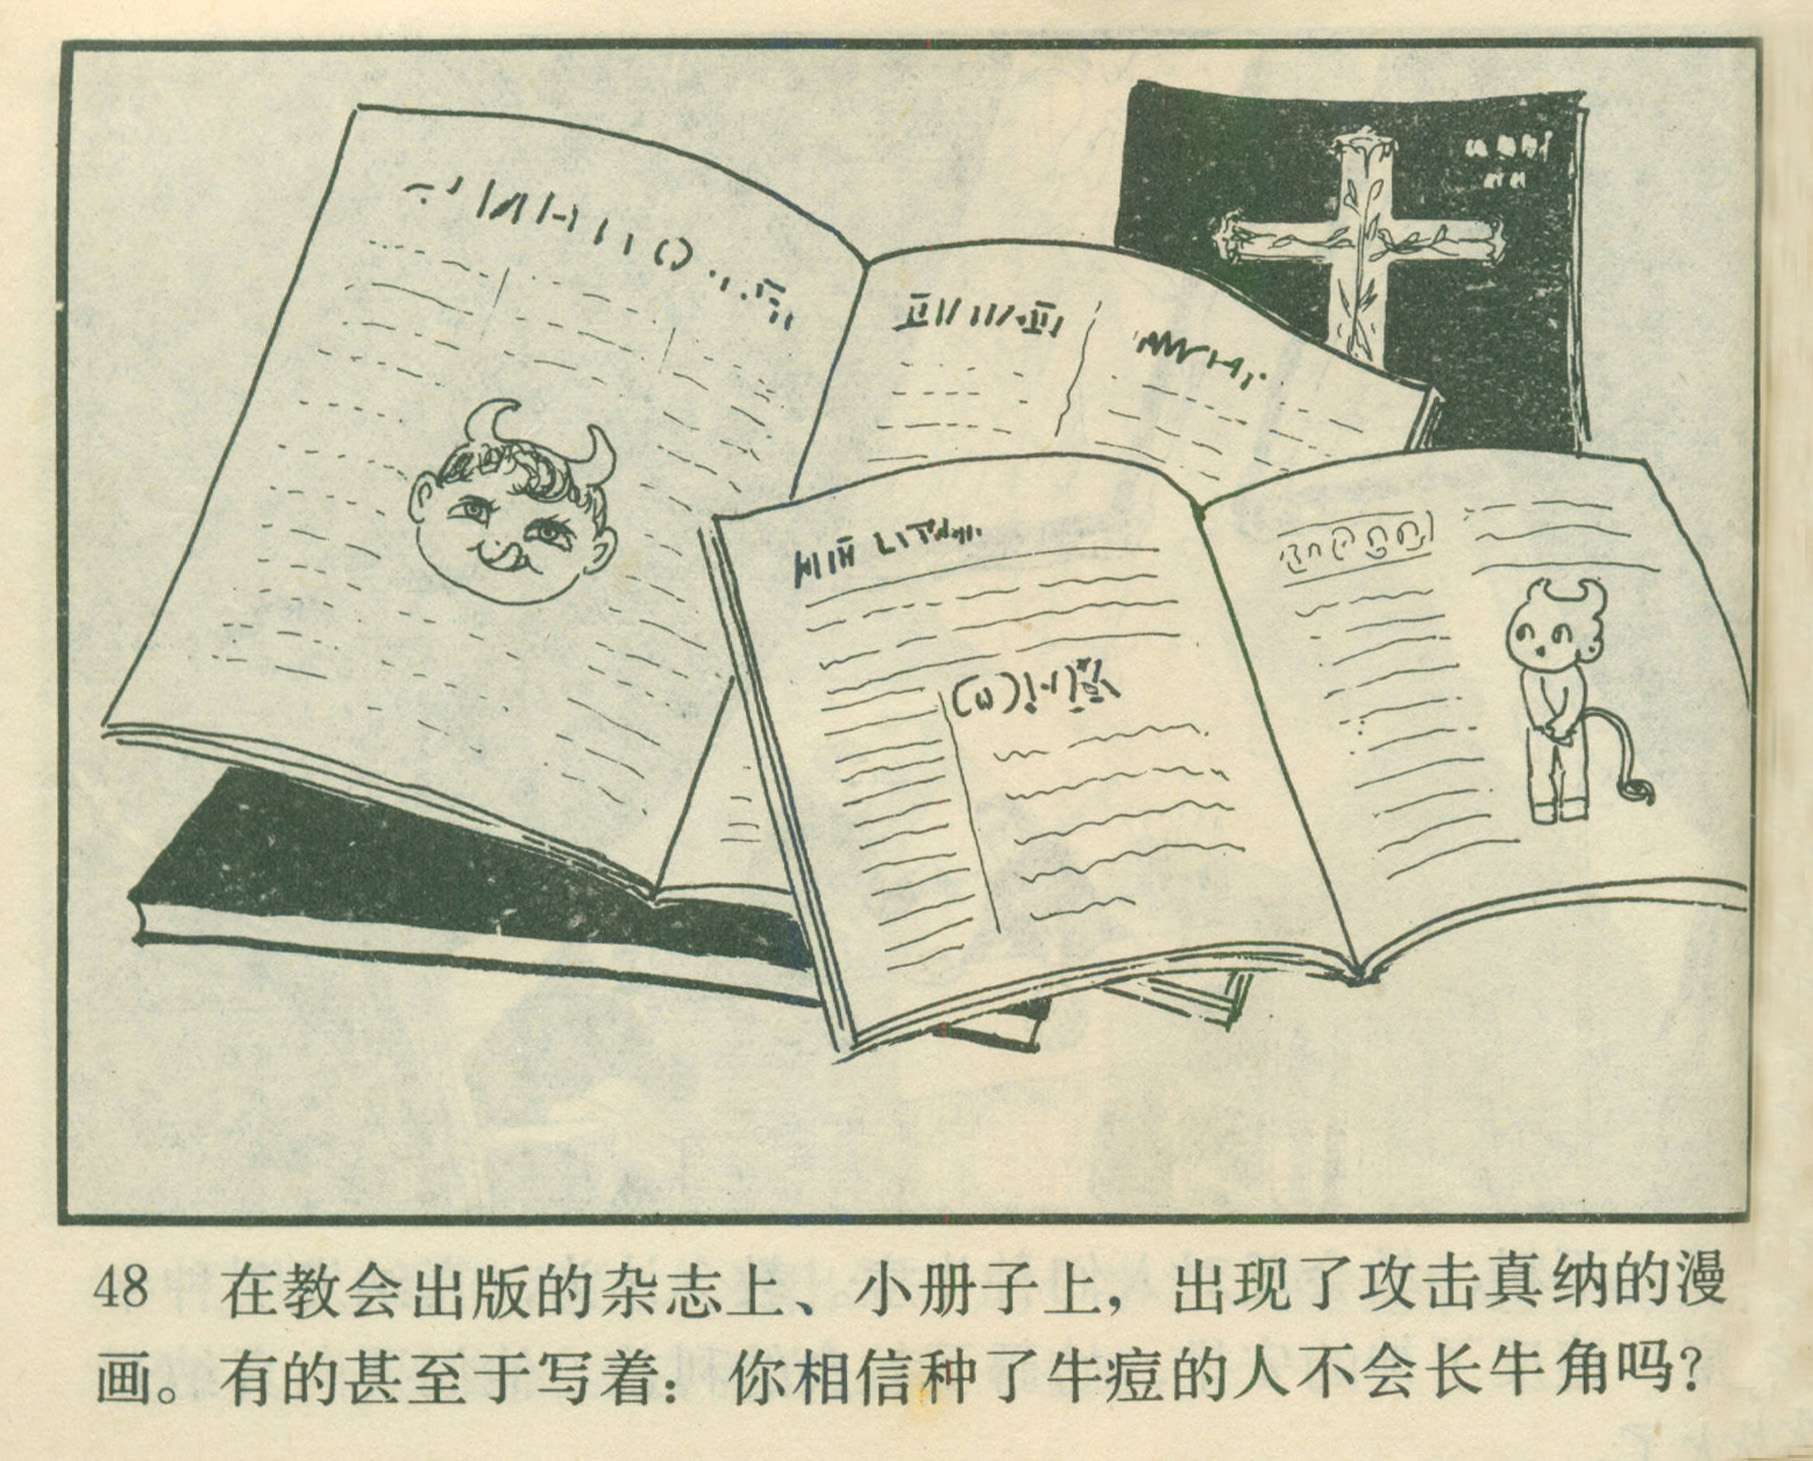 48 在教会出版的杂志上、小册子上，出现了攻击真纳的漫
画。有的甚至于写着：你相信种了牛痘的人不会长牛角吗？